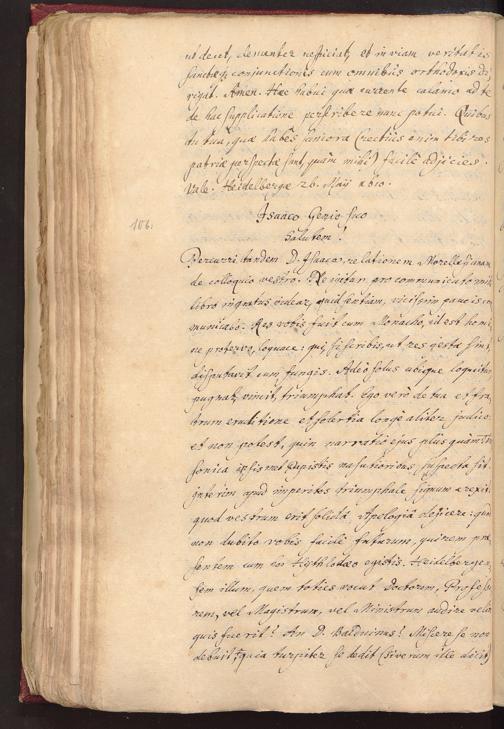 ut decet, clementer respiciat, et in viam veritatis
sanctæq; conjunctionis cum omnibus orthodoxis di-
rigat. Amen. Hæc habui quæ currente calamo ad te
de hac supplicatione perscribere nunc potui. Quibus
tu tua, quæ habes saniora (rectius enim tibi res
patriæ perspectæ sunt, quam mihi) facile adjicies.
Vale. Heidelbergæ 26. Maij 1610.
106.
Isaaco Genio suo
Salutem!
Percurri tandem D. Isaace, relationem
de colloquio vestro. Ne igitur pro communicato mihi
libro ingratus videar, quid sentiam, vicissim paucis com-
municabo. Res vobis fuit cum Monacho, id est homi-
ne protervo, loquace: qui, si scribis, ut res gesta sint,
disputavit cum fungis. Adeò solus ubique loquitur
pugnat, vincit, triumphat. Ego verò de tua et fra-
trum eruditione et solertia longè aliter judico:
et non potest, quin narratio ejus plus quam
sonica ipsismet Papistis nasutioribus suspecta sit.
Interim apud imperitos triumphale signum erexit
quod vestrum erit solidâ Apologiâ dejicere: quin
non dubito vobis facile futurum, qui rem præ-
sentem cum eo Hythlodæo egistis. Heidelbergen-
sem illum, quem toties vocat Doctorem, Professo-
rem, vel Magistrum, vel Ministrum audire velo
quis fuerit? An D. Balduinus? Miscere se non
debuit: quia turpiter se dedit (si verum ille dicit)